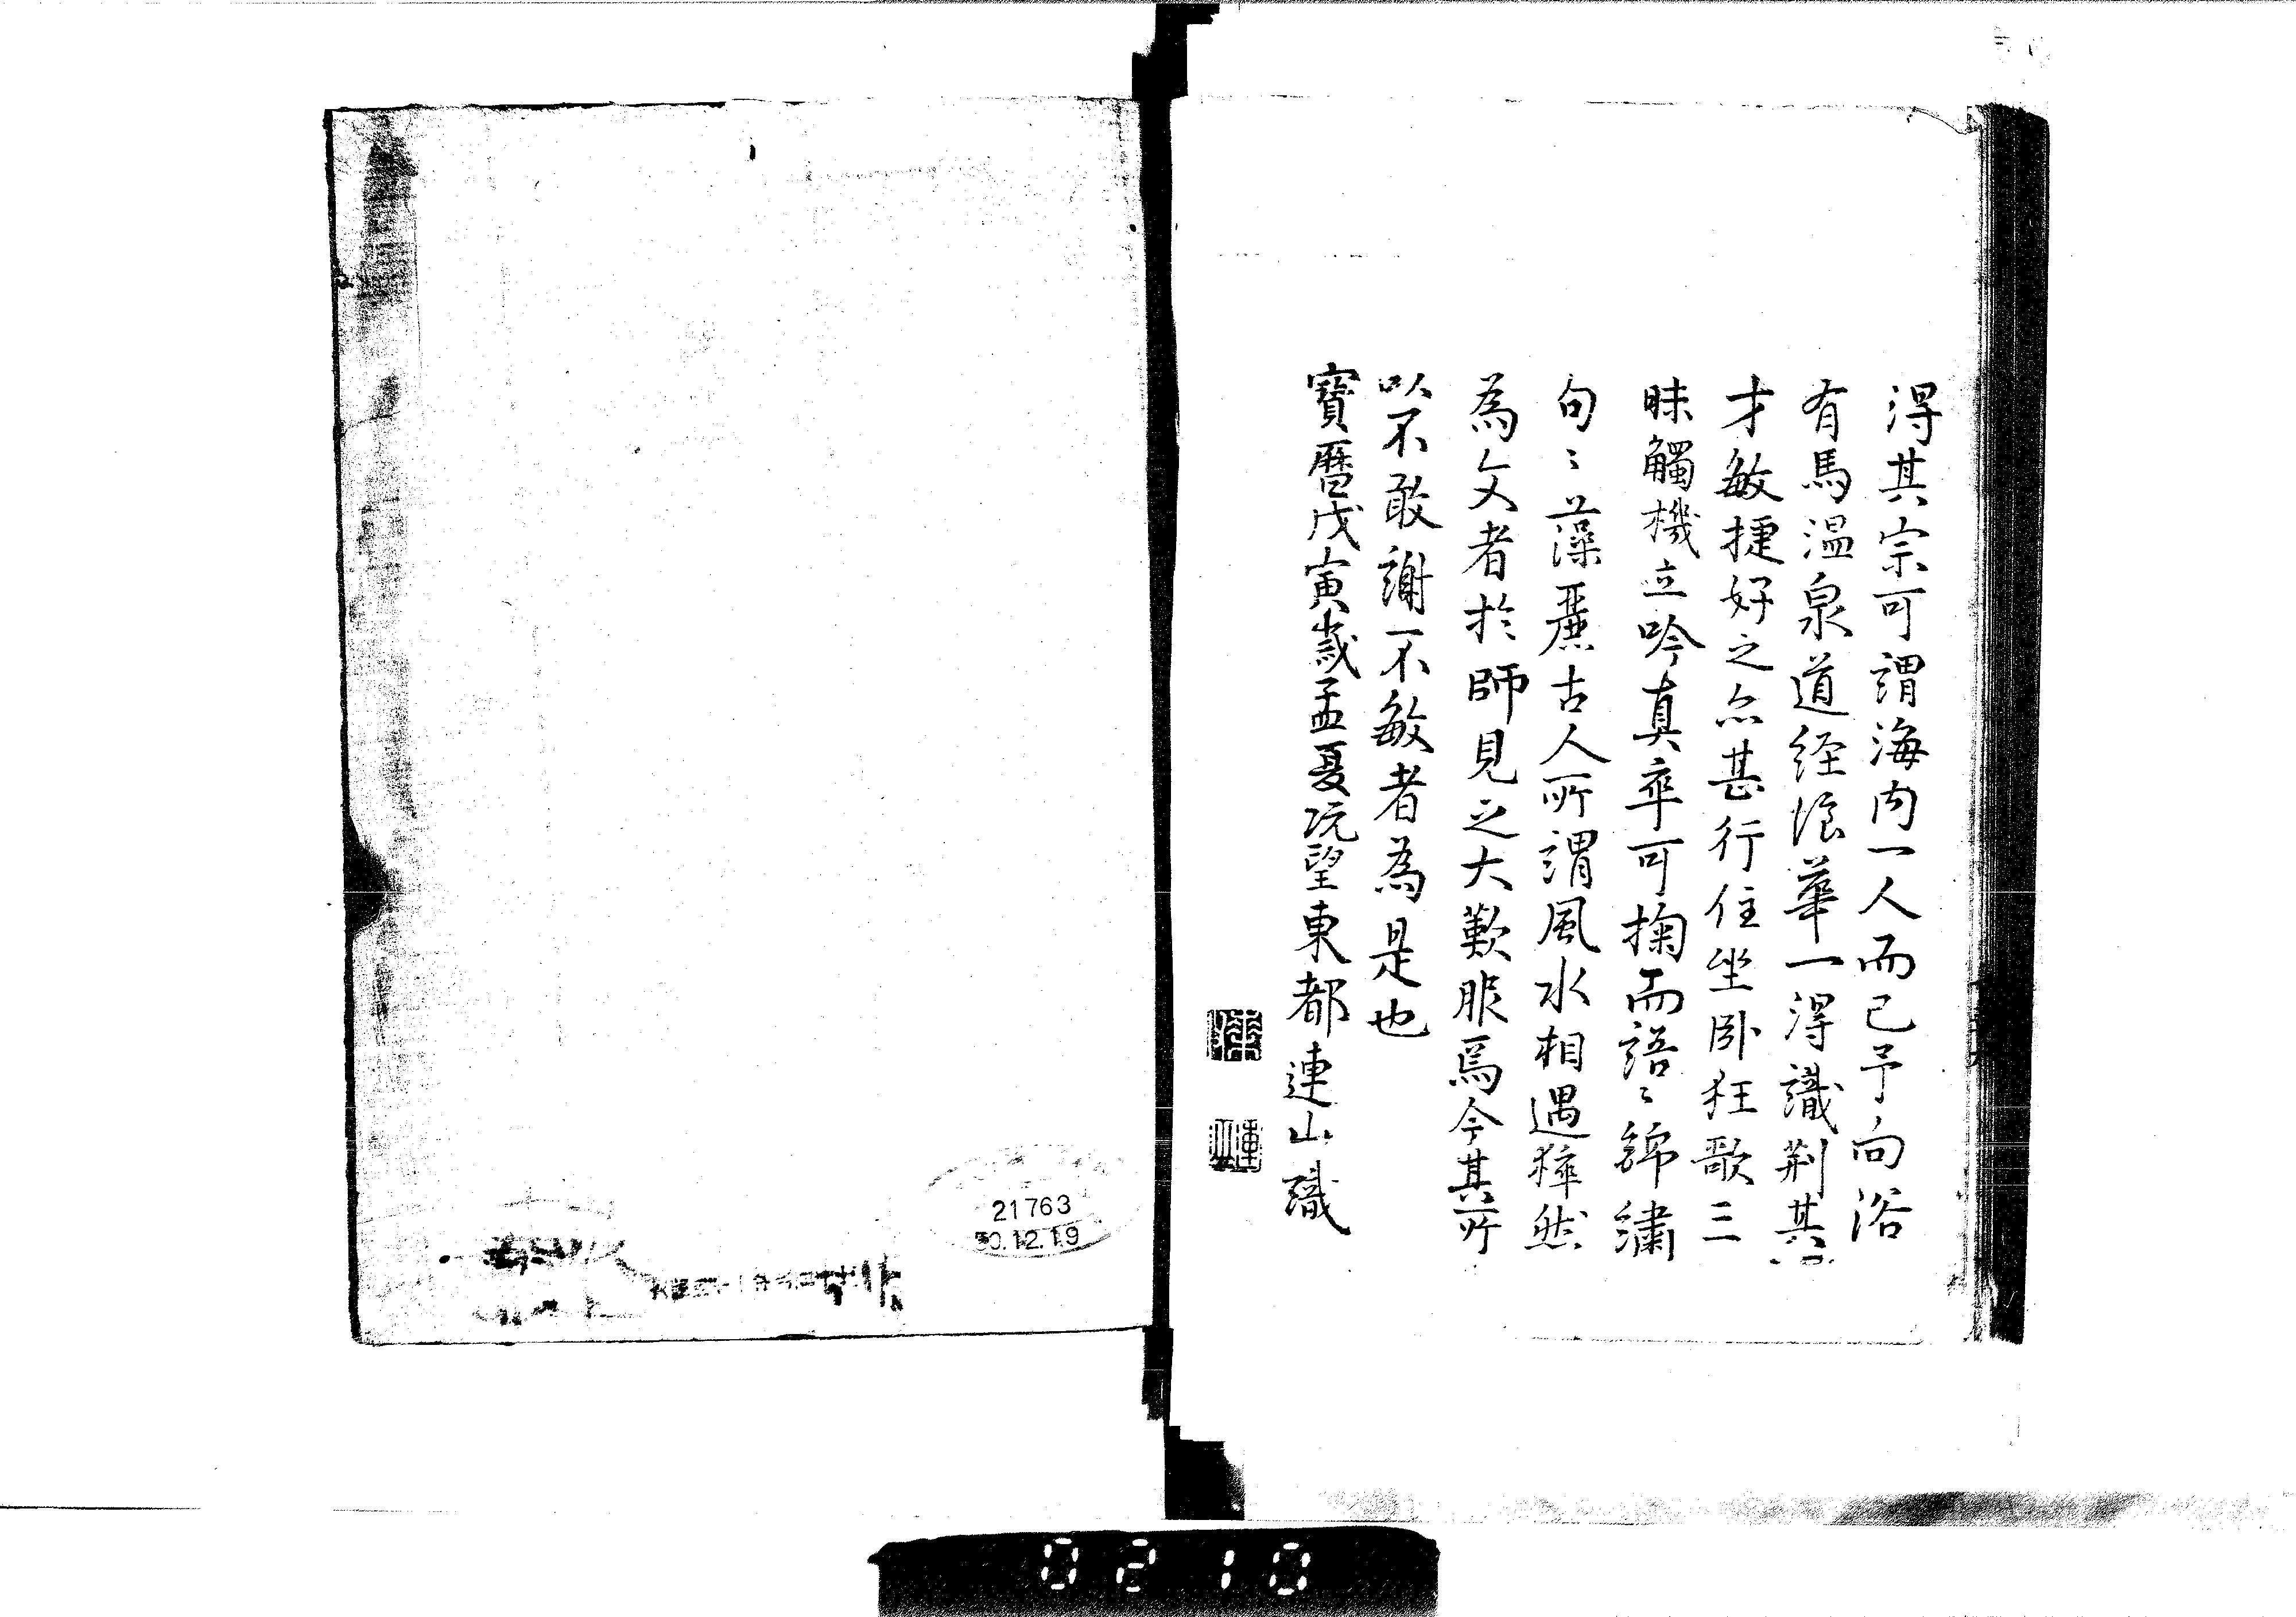 得其宗可謂海内一人而已予向浴
有馬温泉道経浪華一得識荆其
才敏捷好之亦甚行住坐卧狂歌三
昧觸機立吟真率可掬而語〻錦繡
句〻藻麗古人所謂風水相遇猝然
為文者於師見之大歎服焉今其所
以不敢謝不敏者為是也
寶暦戊寅歳孟夏既望東都連山識
21763
0.12.19
0210